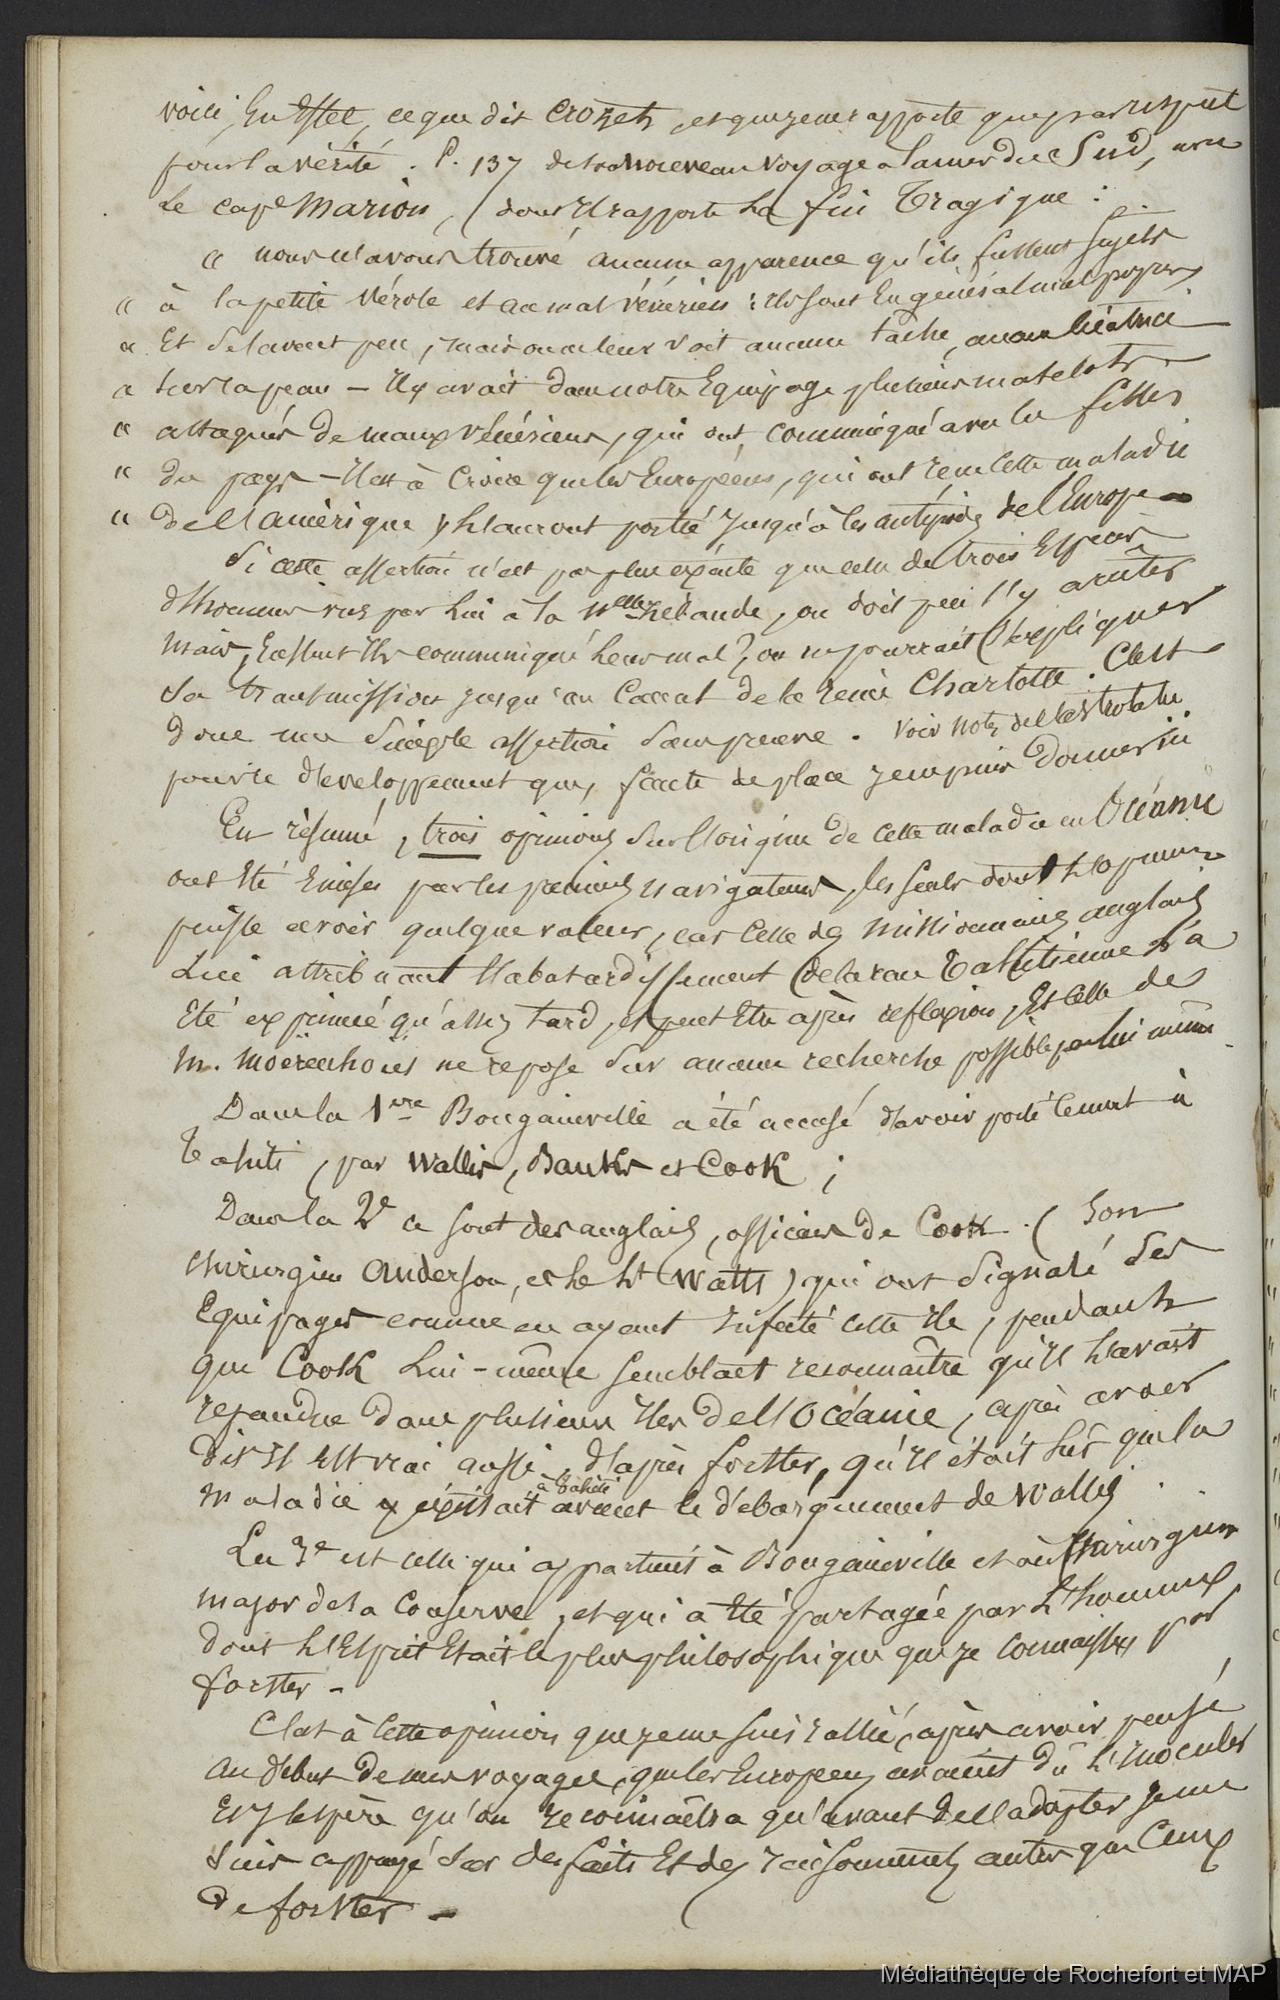 voici, En Effet, ce que dit Crozet, et que je ne rapporte que par respect
pour la vérité. P. 137 de son nouveau voyage à la mer du Sud, avec
Le cape Marion, (dont il rapporte La fin Tragique :
« nous n'avons trouvé aucune apparence qu'ils fussent sujets
« à la petite vérole et au mal vénérien : ils sont En général malpropres
« Et se lavent peu, mais on ne leur voit aucune tache, aucune cicatrice
« sur la peau — Il y avait dans notre Equipage plusieurs matelots
« attaqués de maux vénériens, qui ont communiqué avec les filles
« du pays — Il est à croire que les Européens, qui ont reçu cette maladie
« de l'amérique, l'auront porté jusqu'à les antipodes de l'Europe —
Si cette assertion n'est pas plus exacte que celle de trois Espèces
d'hommes vus par Lui à la Nelle Zélande, on doit peu s'y arrêter
mais, Eussent-ils communiqué leur mal, on ne pourrait s'expliquer
Sa transmission jusqu'au Canal de la reine Charlotte. C'est
donc une Simple assertion Sans preuve. Voir note
pour le développement que, faute de place je ne puis donner ici
En résumé, trois opinions Sur l'origine de cette maladie en Océanie
ont Eté Emises par les premiers navigateurs, les seuls dont l'opinion
puisse avoir quelque valeur, car Celle des missionnaires anglais
Lui attribuant l'abatardissement de la race Tahitienne n'a
Eté exprimée qu'assez tard, et peut Etre après réflexion, Et Celle de
M. Moërenhoüt ne repose Sur aucune recherche possible par lui même
Dans la 1ere Bougainville a été accusé d'avoir porté le mal à
Tahiti, par Wallis, Banks et Cook ;
Dans la 2e ce sont des anglais, officiers de Cook (Son
chirurgien Anderson, et le Lt Watts) qui ont Signalé Ses
Equipages comme en ayant infecté cette Ile, pendant
que Cook Lui-même semblait reconnaître qu'il l'avait
répandue dans plusieurs Iles de l'Océanie, après avoir
dit il est vrai aussi, d'après forster, qu'il était sûr que la
maladie existait à Tahiti avant le débarquement de Wallis
La 3e est celle qui appartient à Bougainville et au Chirurgien
major de sa Conserve, et qui a Eté partagée par l'homme
dont l'Esprit Etait le plus philosophique que je connaisse,
forster —
C'est à Cette opinion que je me suis rallié, après avoir pensé
au début de mes voyages, que les Européens avaient dû l'inoculer
Et j'espère qu'on reconnaîtra qu'avant de l'adopter je me
Suis appuyé Sur des faits Et des raisonnements autres que Ceux
de forster —
Médiathèque de Rochefort et MAP